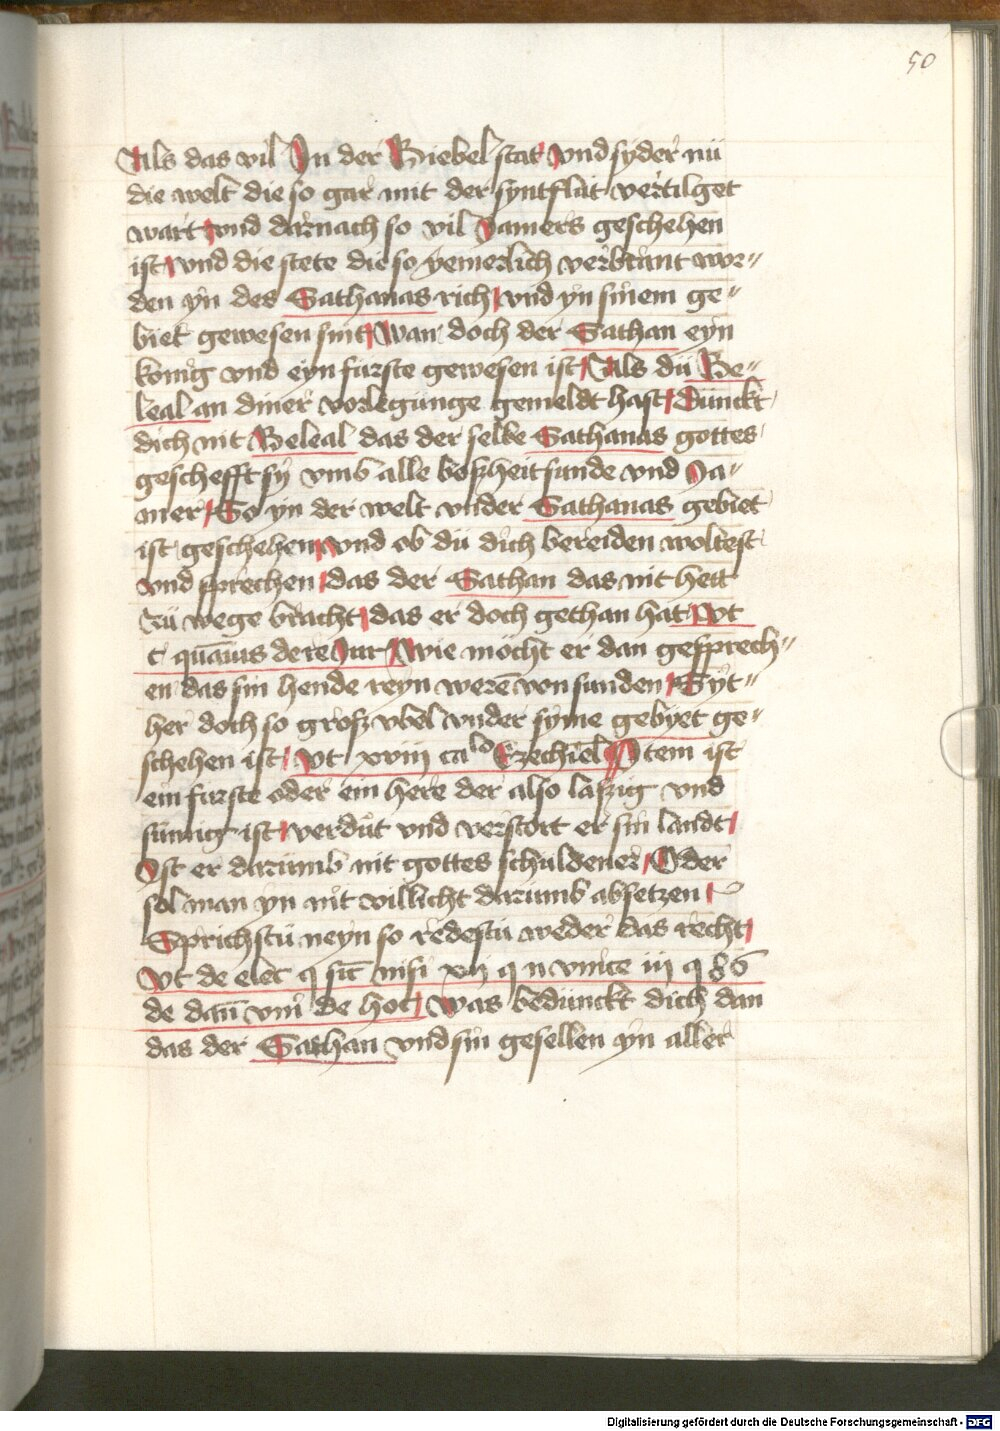 50
Als das vil In der Biebel stat vnd syder nü
die welt die so gar mit der syntflüt vertilget
wart vnd darnach so vil Jamers geschehen
ist vnd die stete die so yemerlich verbrant wor„
den yn des Sathanas rich vnd yn sinem ge„
biet gewesen sint Wan doch der Sathan eyn
konig vnd eyn furste gewesen ist Als dü Be„
leal an diner vorlegunge gemeldt hast Dünckt
dich nit Beleal das der selbe Sathanas gottes
geschefft sy vmb alle boszheit sunde vnd Ja„
mer So yn der welt vnder Sathanas gebiet
ist geschehen vnd ob dü dich bereiden woltest
vnd sprechen das der Sathan das nit hett
zü wege bracht das er doch gethan hat Vt
c quāuis de re Jur Wie möcht er dan gesprech„
en das sin hende reyn werē von sunden Syt„
her doch so grosz vbel vnder syme gebyet ge„
schehen ist Vt xviij calo Ezechiel Item ist
ein furste oder ein here der also laszig vnd
sümig ist verdüt vnd verstort er sin landt
Ist er darumb nit gottes schuldener Oder
sol man yn nit villicht darumb absetzen
Sprichstu neyn so redestu weder das recht
Vt de elec q sit nisi xij q
de dāu vm de hoc Was bedünckt dich dan
das der Sathan vnd sin gesellen yn aller
Digitalisierung gefördert durch die Deutsche Forschungsgemeinschaft - DFG